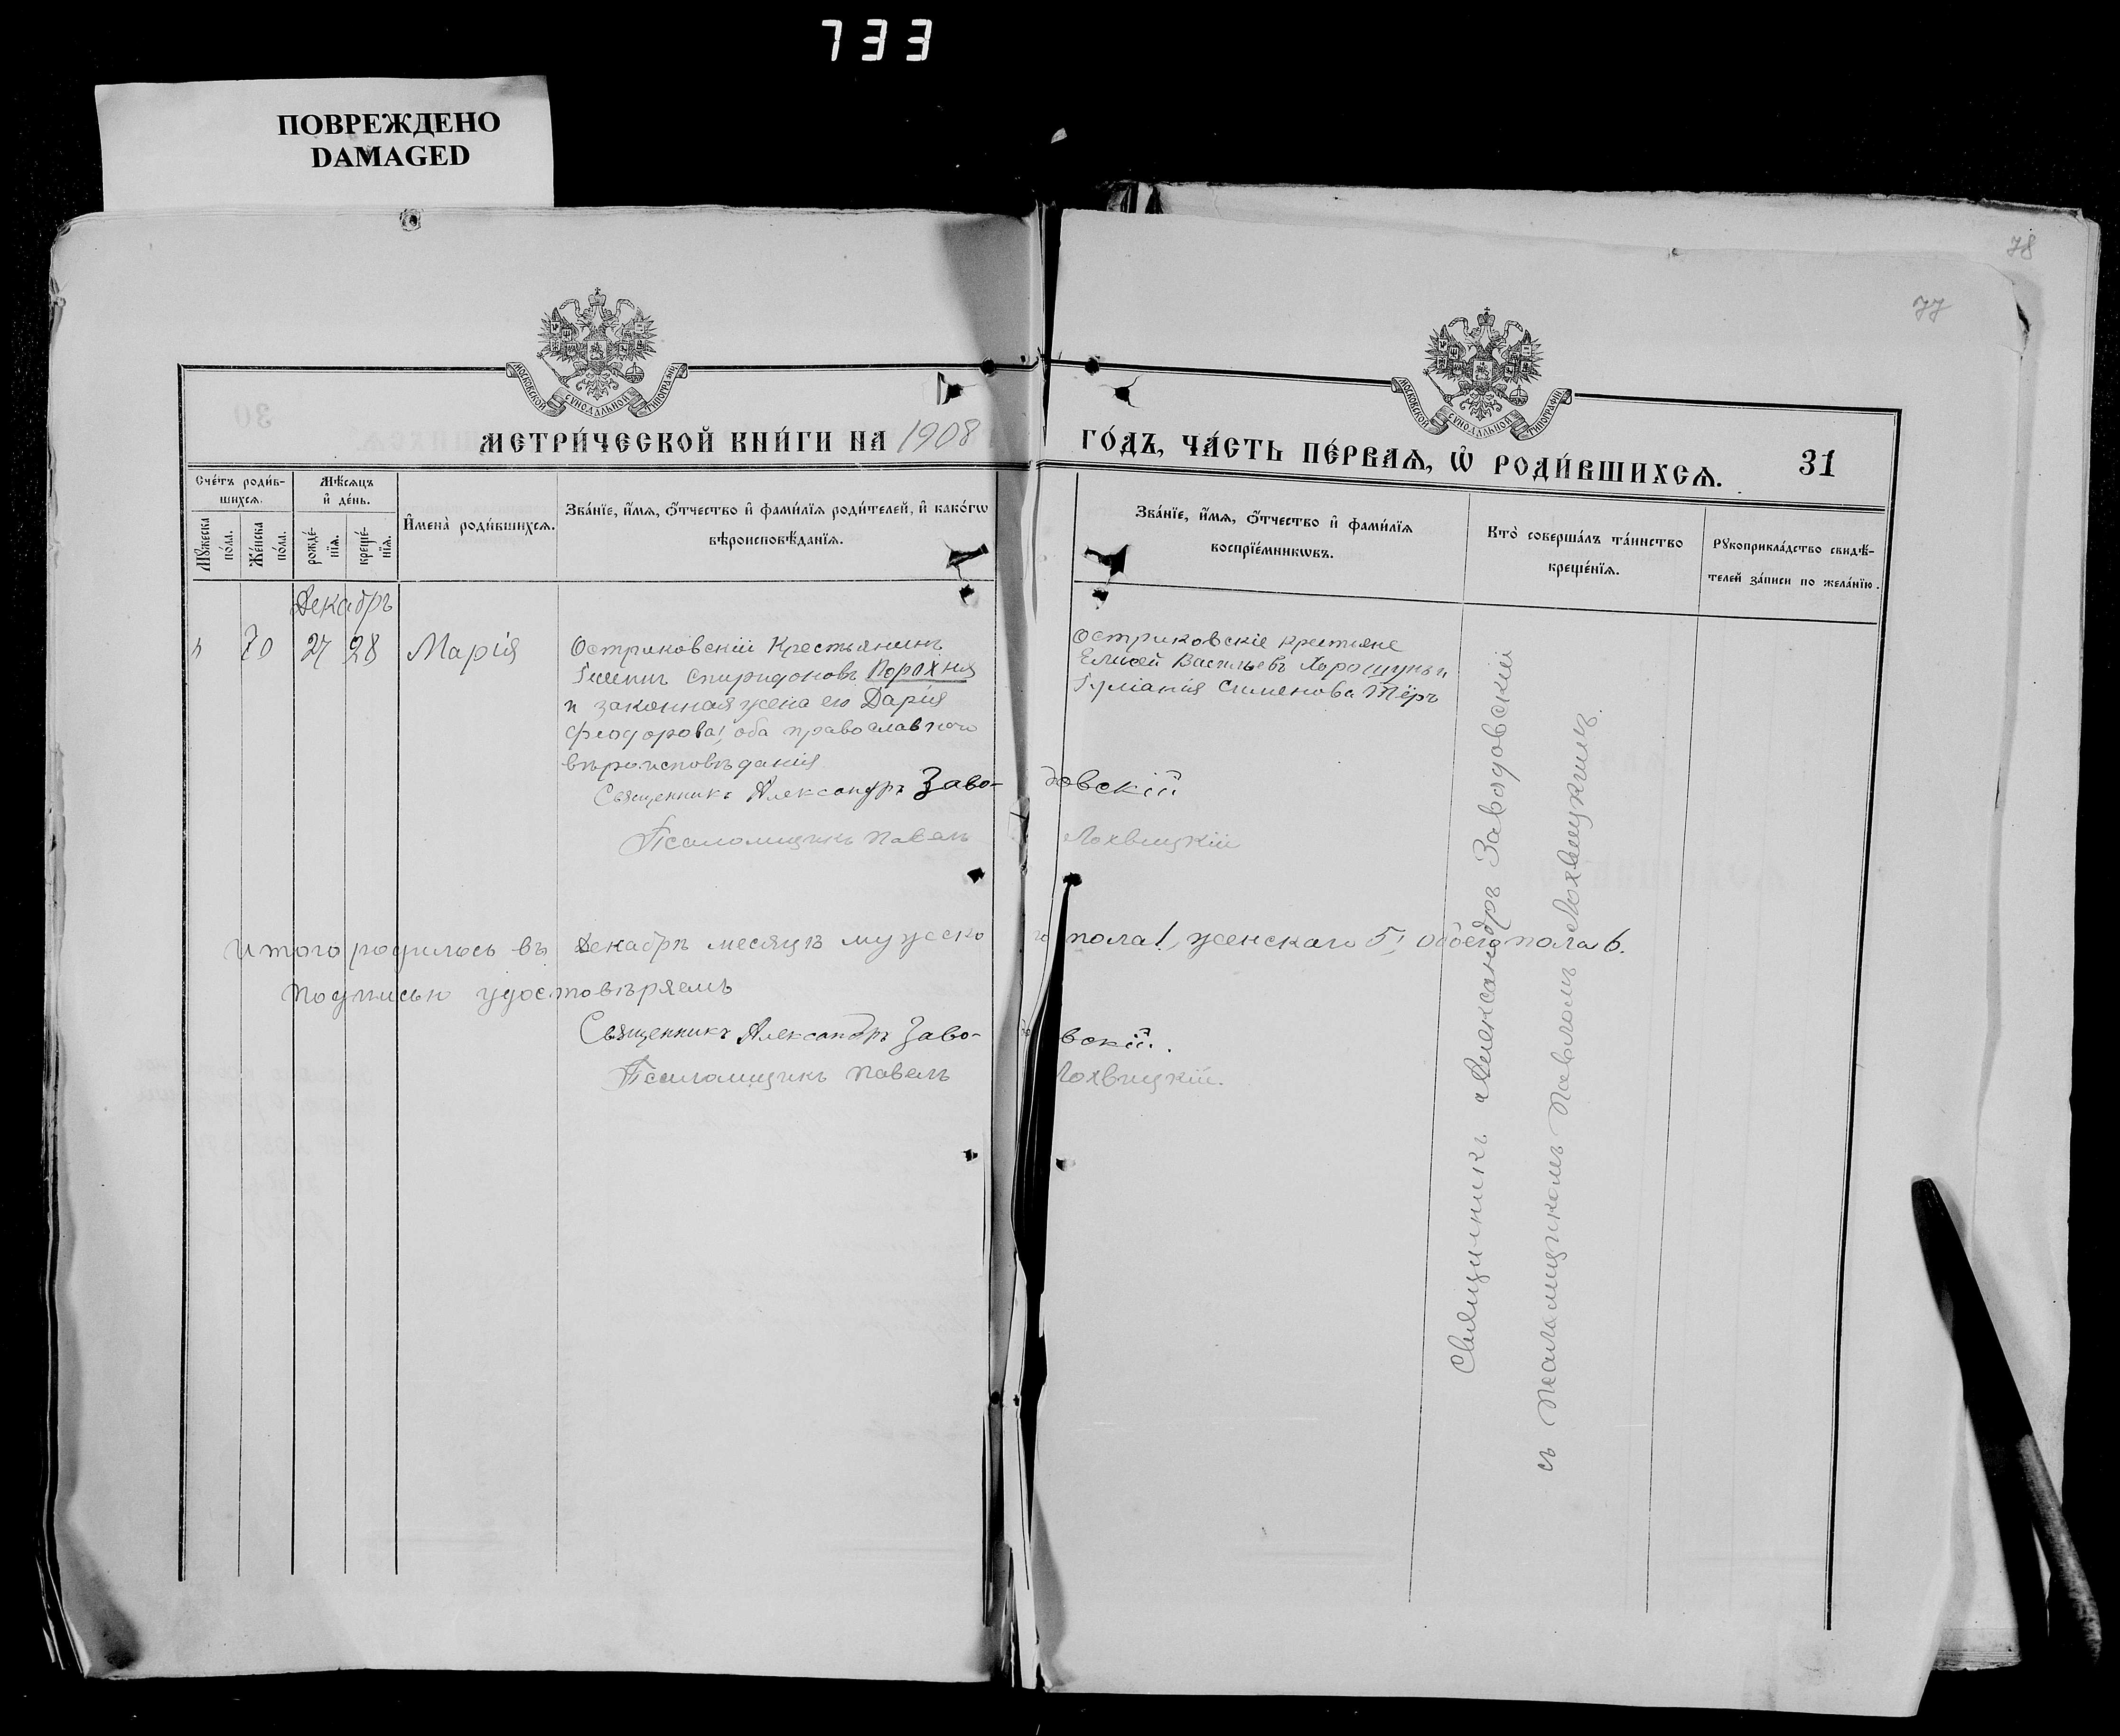 733
ПОВРЕЖДЕНО
DAMAGED
78
77
МОСКОВСКОЙ СѴНОДАЛЬНОЙ ТИПОГРАФІИ
МОСКОВСКОЙ СѴНОДАЛЬНОЙ ТИПОГРАФІИ
МЕТРИ́ЧЕСКОЙ КНИ́ГИ НА 1908 ГО́ДЪ, ЧА́СТЬ ПЕ́РВАѦ, Ѡ҆ РОДИ́ВШИХСѦ. 31
Сче́тъ роди́в-
шихсѧ.
Мꙋжеска по́ла.
Же́нска по́ла.
Мѣ́сѧцъ
и҆ де́нь.
рожде́-нїѧ.
креще́-нїѧ.
И҆мена̀ роди́вшихсѧ.
Зва́нїе, и҆́мѧ, ѻ҆́тчество и҆ фами́лїѧ роди́телей, и҆ како́гѡ
вѣроисповѣ́данїѧ.
Зва́нїе, и҆́мѧ, ѻ҆́тчество и҆ фами́лїѧ
воспрїе́мникѡвъ.
Кто̀ соверша́лъ та́инство
креще́нїѧ.
Рꙋкоприкла́дство свидѣ́-
телей за́писи по жела́нїю.
Декабрь
70 27 28 Марія
Остриковскій Крестьянинъ
Спиридоновъ Порохня
и законная жена его Дарія
Феодорова, оба православного
вѣроисповѣданія
Остриковскіе крестьяне
Елисей Васильевъ Хорошунъ и
Семенова Тёръ
Священникъ Александръ Заводовскій
Псаломщикъ Павелъ Лохвицкій
Священникъ Александръ Заводовскій
съ Псаломщикомъ Павломъ Лохвицкимъ.
Итого родилось въ Декабрѣ месяцѣ мужского пола 1, женскаго 5, обоего пола 6.
Подписью удостовѣряемъ
Священникъ Александръ Заводовскій.
Псаломщикъ Павелъ Лохвицкій.